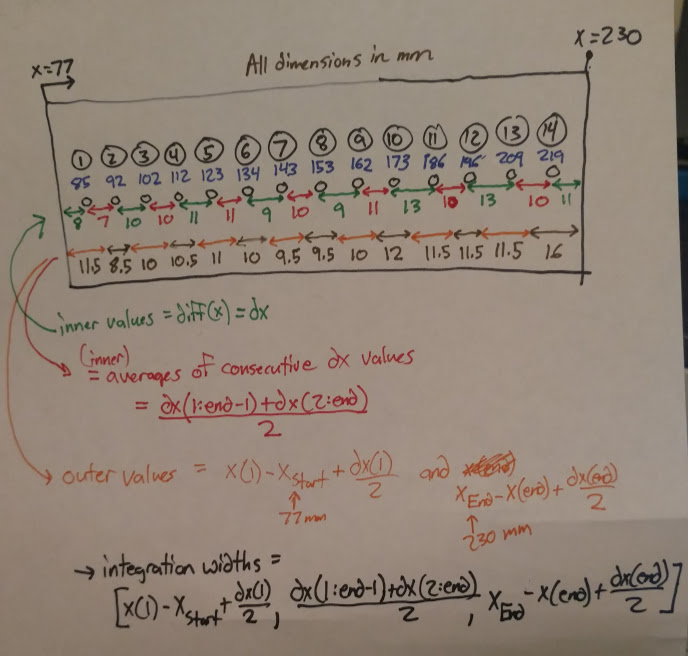 x=77 All dimensions in mm x=230
1 2 3 4 5 6 7 8 9 10 11 12 13 14
85 92 102 112 123 134 143 153 162 173 186 196 209 219
8 7 10 10 11 11 9 10 9 11 13 10 13 10 11
11.5 8.5 10 10.5 11 10 9.5 9.5 10 12 11.5 11.5 11.5 16
inner values = diff(x) = dx
(inner)
= averages of consecutive dx values
= dx(1:end-1)+dx(2:end)
2
outer values = x(1) - xStart + dx(1)/2 and xEnd - x(end) + dx(end)/2
77mm 230 mm
→ integration widths =
[x(1) - xStart + dx(1)/2, dx(1:end-1)+dx(2:end)/2, xEnd - x(end) + dx(end)/2]